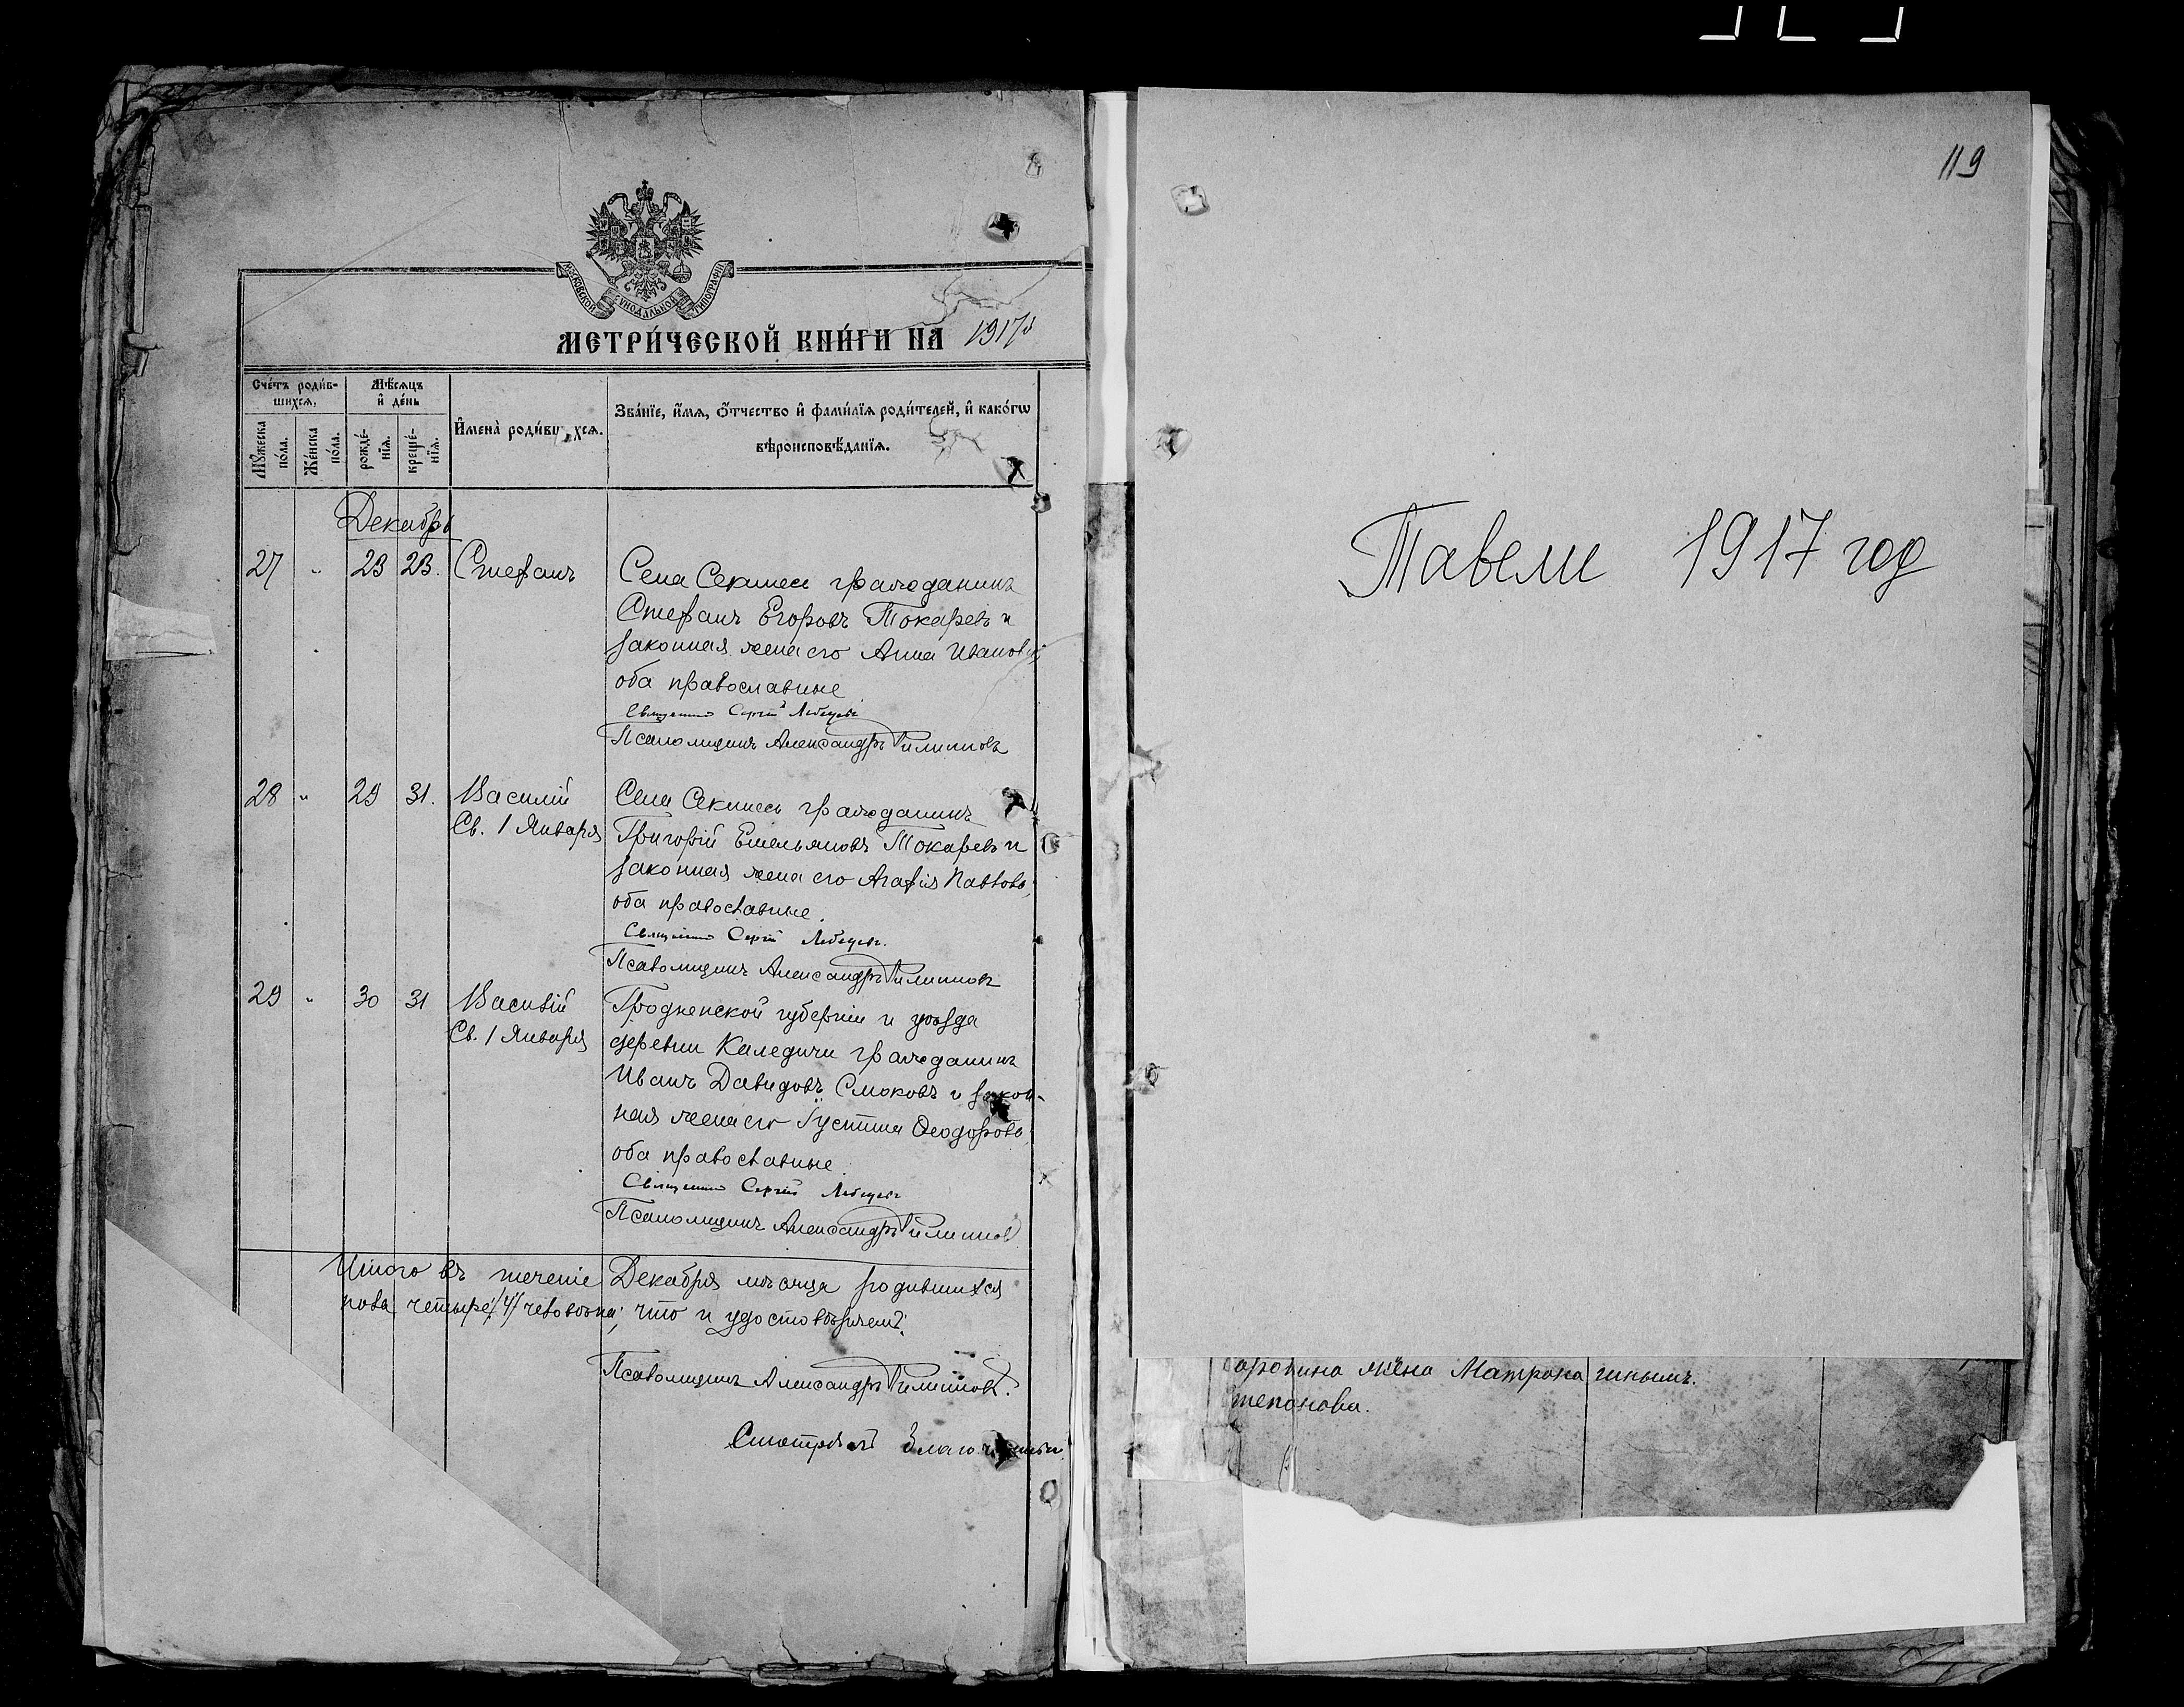 МОСКОВСКОЙ СѴНОДАЛЬНОЙ ТИПОГРАФІИ
МЕТРИ́ЧЕСКОЙ КНИ́ГИ НА 1917
Сче́тъ роди́в-
шихсѧ.
Мѣ́сѧцъ
и҆ де́нь
Мꙋ́жеска
по́ла.
Же́нска
по́ла.
рожде́-
нїѧ.
креще́-
нїѧ.
И҆мена̀ роди́вш хсѧ.
Зва́нїе, и҆́мѧ, ѻ҆́тчество и҆ фами́лїѧ роди́телей, и҆ како́гѡ
вѣроисповѣ́данїѧ.
Декабрь
27 " 23 23. Стефанъ
Села Секинесь гражданинъ
Стефанъ Егоровъ Токаревъ и
законная жена его Анна Иванов
оба православные
Священникъ Сергій
Псаломщикъ Александръ Филипповъ
28 " 29 31. Василій
Св. 1 Января
Села Секинесь гражданинъ
Григорій Емельяновъ Токаревъ и
законная жена его Агафія Павлова,
оба православные.
Священникъ Сергій
Псаломщикъ Александръ Филипповъ
29 " 30 31 Василій
Св. 1 Января
Гродненской губерніи и уѣзда
деревни Каледичи гражданинъ
Иванъ Давидовъ Смоковъ и закон-
ная жена его Іустина Ѳеодорова,
оба православные.
Священникъ Сергій
Псаломщикъ Александръ Филиппов
Итого въ теченіе Декабря мѣсяца родившихся
пола четыре /4/ человѣка, что и удостовѣряемъ:
Псаломщикъ Александръ Филипповъ.
Смотрѣлъ
119
Тавели 1917 год
жена Матрона
тепанова.